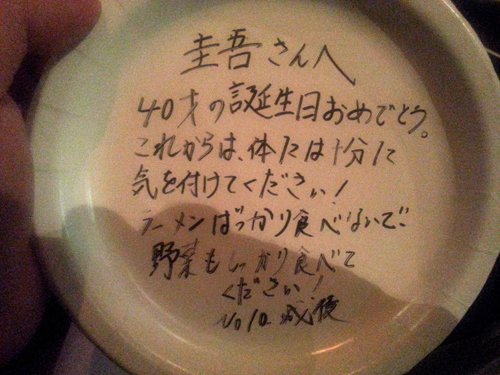 圭吾さんへ
40才の誕生日おめでとう。
これからは、体には十分に
気を付けてください!
ラーメンばっかり食べないで
野菜もしっかり食べて
ください!
No10